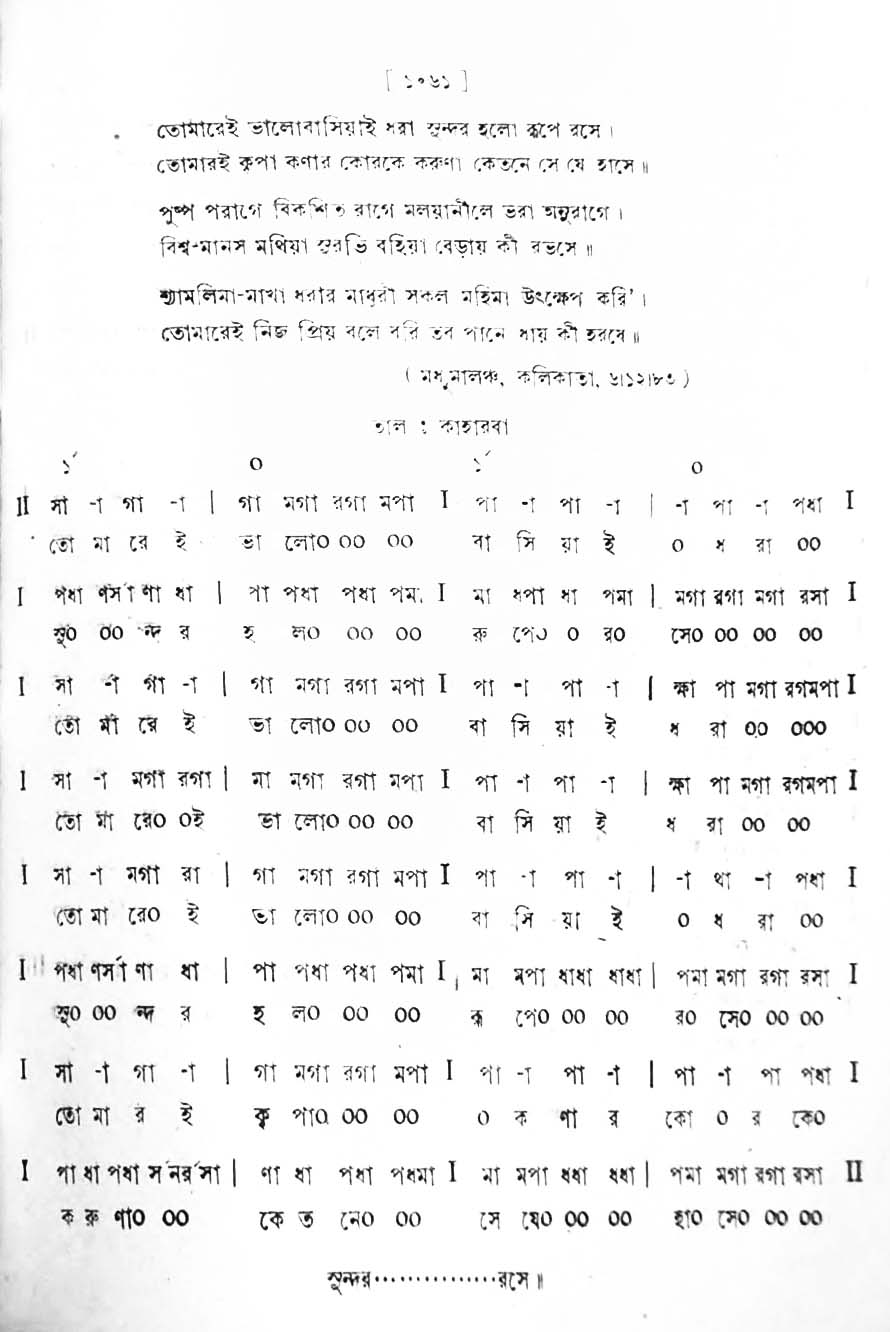 [ ১০৬১ ]
তোমারেই ভালোবাসিয়াই ধরা সুন্দর হলো রূপে রসে।
তোমারই কৃপা কণার কোরকে করুণা কেতনে সে যে হাসে॥
পুষ্প পরাগে বিকশিত রাগে মলয়ানীলে ভরা অনুরাগে।
বিশ্ব-মানস মথিয়া সুরভি বহিয়া বেড়ায় কী রভসে॥
শ্যামলিমা-মাখা ধরার মাধুরী সকল মহিমা উৎক্ষেপ করি'।
তোমারেই নিজ প্রিয় বলে বরি তব পানে ধায় কী হরষে॥
( মধুমালঞ্চ, কলিকাতা, ৬।১২।৮৩ )
তাল : কাহারবা
১´ ০ ১´ ০
II সা -া গা -া | গা মগা রগা মপা I পা -া পা -া | -া পা -া পধা I
তো মা রে ই ভা লো০ ০০ ০০ বা সি য়া ই ০ ধ রা ০০
I পধা ণর্সা ণা ধা | পা পধা পধা পমা I মা ধপা ধা পমা | মগা রগা মগা রসা I
সু০ ০০ ন্দ র হ ল০ ০০ ০০ রু পে০ ০ র০ সে০ ০০ ০০ ০০
I সা -া গা -া | গা মগা রগা মপা I পা -া পা -া | ক্ষা পা মগা রগমপা I
তো মা রে ই ভা লো০ ০০ ০০ বা সি য়া ই ধ রা ০০ ০০০
I সা -া মগা রগা | মা মগা রগা মপা I পা -া পা -া | ক্ষা পা মগা রগমপা I
তো মা রে০ ০ই ভা লো০ ০০ ০০ বা সি য়া ই ধ রা ০০ ০০
I সা -া মগা রা | গা মগা রগা মপা I পা -া পা -া | -া থা -া পধা I
তো মা রে০ ই ভা লো০ ০০ ০০ বা সি য়া ই ০ ধ রা ০০
I পধা ণর্সা ণা ধা | পা পধা পধা পমা I মা মপা ধাধা ধাধা | পমা মগা রগা রসা I
সু০ ০০ ন্দ র হ ল০ ০০ ০০ রূ পে০ ০০ ০০ র০ সে০ ০০ ০০
I সা -া গা -া | গা মগা রগা মপা I পা -া পা -া | পা -া পা পধা I
তো মা র ই কৃ পা০ ০০ ০০ ০ ক ণা র কো ০ র কে০
I পা ধা পধা র্সনর্রর্সা | ণা ধা পধা পধমা I মা মপা ধধা ধধা | পমা মগা রগা রসা II
ক রু ণা০ ০০ কে ত নে০ ০০ সে যে০ ০০ ০০ হা০ সে০ ০০ ০০
সুন্দর···············রসে॥